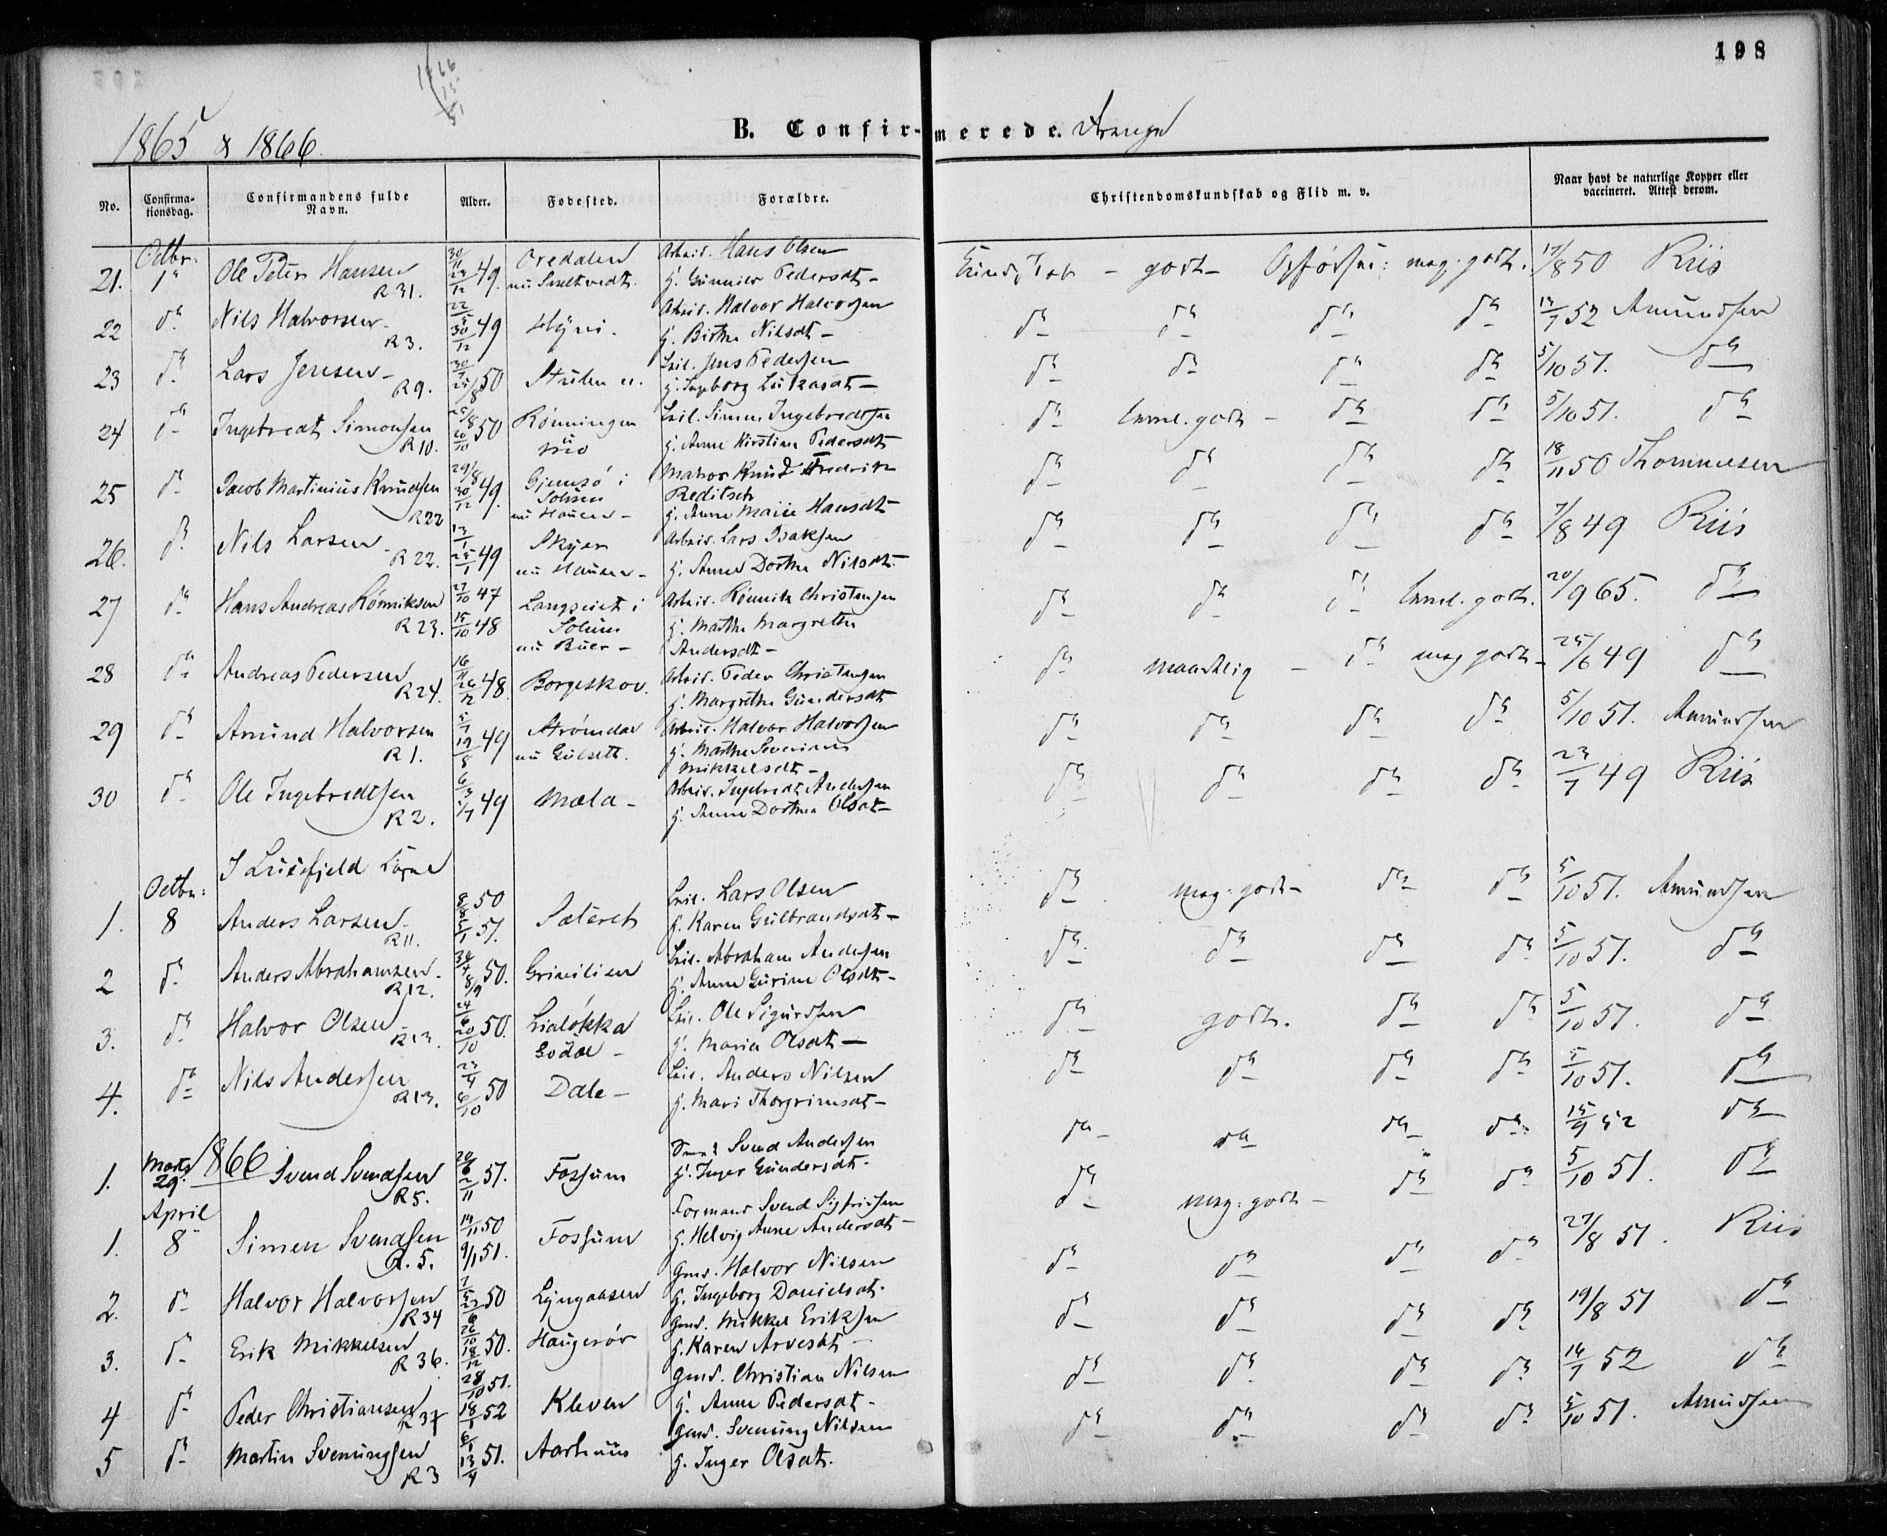 198
1865 & 1866.
B. Confirmerede. Drenge
No. Confirmationsdag. Confirmandens fulde Navn. Alder. Fødested. Forældre. Christendomskundskab og Flid m. v. Naar havt de naturlige Kopper eller vaccineret. Attest derom.
Octbr:
21. 1ste Ole Peter Hansen R 31. 49. Oredalen nu Smeltvedt. Arbeid. Hans Olsen H. Gunnild Pedersdt Kundskab - godt - Opførsel: meg. godt. 17/8 50 Riis
22 do Nils Halvorsen R 3. 49 Høgni. Arbeid. Halvor Halvorsen H. Birthe Nilsdt do do do do 52 Amundsen
23 do Lars Jensen R 9. 50 Stulen Leil. Jens Pedersen H. Ingeborg Lukasdt do do do do 5/10 51. do
24 do Ingebredt Simonsen R 10. 50 Rønningen Leil. Simen Ingebredsen H. Anne Kirstine Pedersdt do temmel. godt - do do 5/10 51. do
25 do Jacob Martinius Knudsen R 22 49. Gjemsø i Solum nu Hauen Matros Knud Fredrik Reditsch H. Anne Marie Hansdt do do do do 18/11 50 Thommesen
26. do Nils Larsen R 22. 49 Skyer nu Hauen Arbeid. Lars Isaksen H. Anne Dorthe Nilsdt. do do do do 7/8 49 Riis
27 do Hans Andreas Rønniksen R 23. 47 48 Langseiet i Solum nu Buer Arbeid. Rønnik Christensen H. Marthe Margrethe Andersdt do do do temmel. godt. 20/9 65. do
28 do Andreas Pedersen R 24. 48. Borgeskov. Arbeid. Peder Christensen H. Margrethe Gundersdt do maadelig - do meg godt 25/6 49 do
29 do Amund Halvorsen R 1. 49 Strømdal nu Gulseth. Arbeid. Halvor Halvorsen H. Marthe Severine Mikkelsdt do do do do 5/10 51. Amundsen
30 do Ole Ingebredtsen R 2. 49 Mæla Arbeid. Ingebredt Andersen H. Anne Dorthea Olsdt do do do do 49 Riis
I Luxefjeld Kirke
Octbr:
1. 8 Anders Larsen R 11. 50 51. Sæteret Leil. Lars Olsen H. Karen Gulbrandsdt do meg: godt do do 5/10 51. Amundsen
2 do Anders Abrahamsen R 12. 50. Grinilien Leil. Abraham Andersen H. Anne Gurine Olsdt do do do do 5/10 51. do
3. do Halvor Olsen R 13. 50. Lialøkka Leil. Ole Sigurdsen H. Maria Olsdt do godt. do do 5/10 51. do
4. do Nils Andersen R 13. 50 Dale Leil. Anders Nilsen H. Mari Thorgrimsdt do do do do 5/10 51. do
1866
1. Marts 29 Svend Svendsen R 5. 51. Fossum Svend Andersen H. Inger Gundersdt. do do do do 52 do
April
1. 8 Simen Svendsen R. 5. 50 51. Fossum Formand Svend Sigfridsen H. Helvig Anne Andersdt do meg: godt do do 5/10 51. do
2. do Halvor Halvorsen R 34 50 Lyngaasen Gmd. Halvor Nilsen H. Ingeborg Danielsdt. do do do do 27/8 51. Riis
3. do Erik Mikkelsen R 36. 50. Haugerør Gmd. Mikkel Eriksen H. Karen Arvesdt do do do do 19/8 51 do
4 do Peder Christiansen R 37 51. 52 Kleven Gmd. Christian Nilsen H. Anne Pedersdt do do do do 52 do
5 do Martin Svenungsen R 3 51. Aarhuus Gmd. Svenung Nilsen H. Inger Olsdt. do do do do 5/10 51. Amundsen